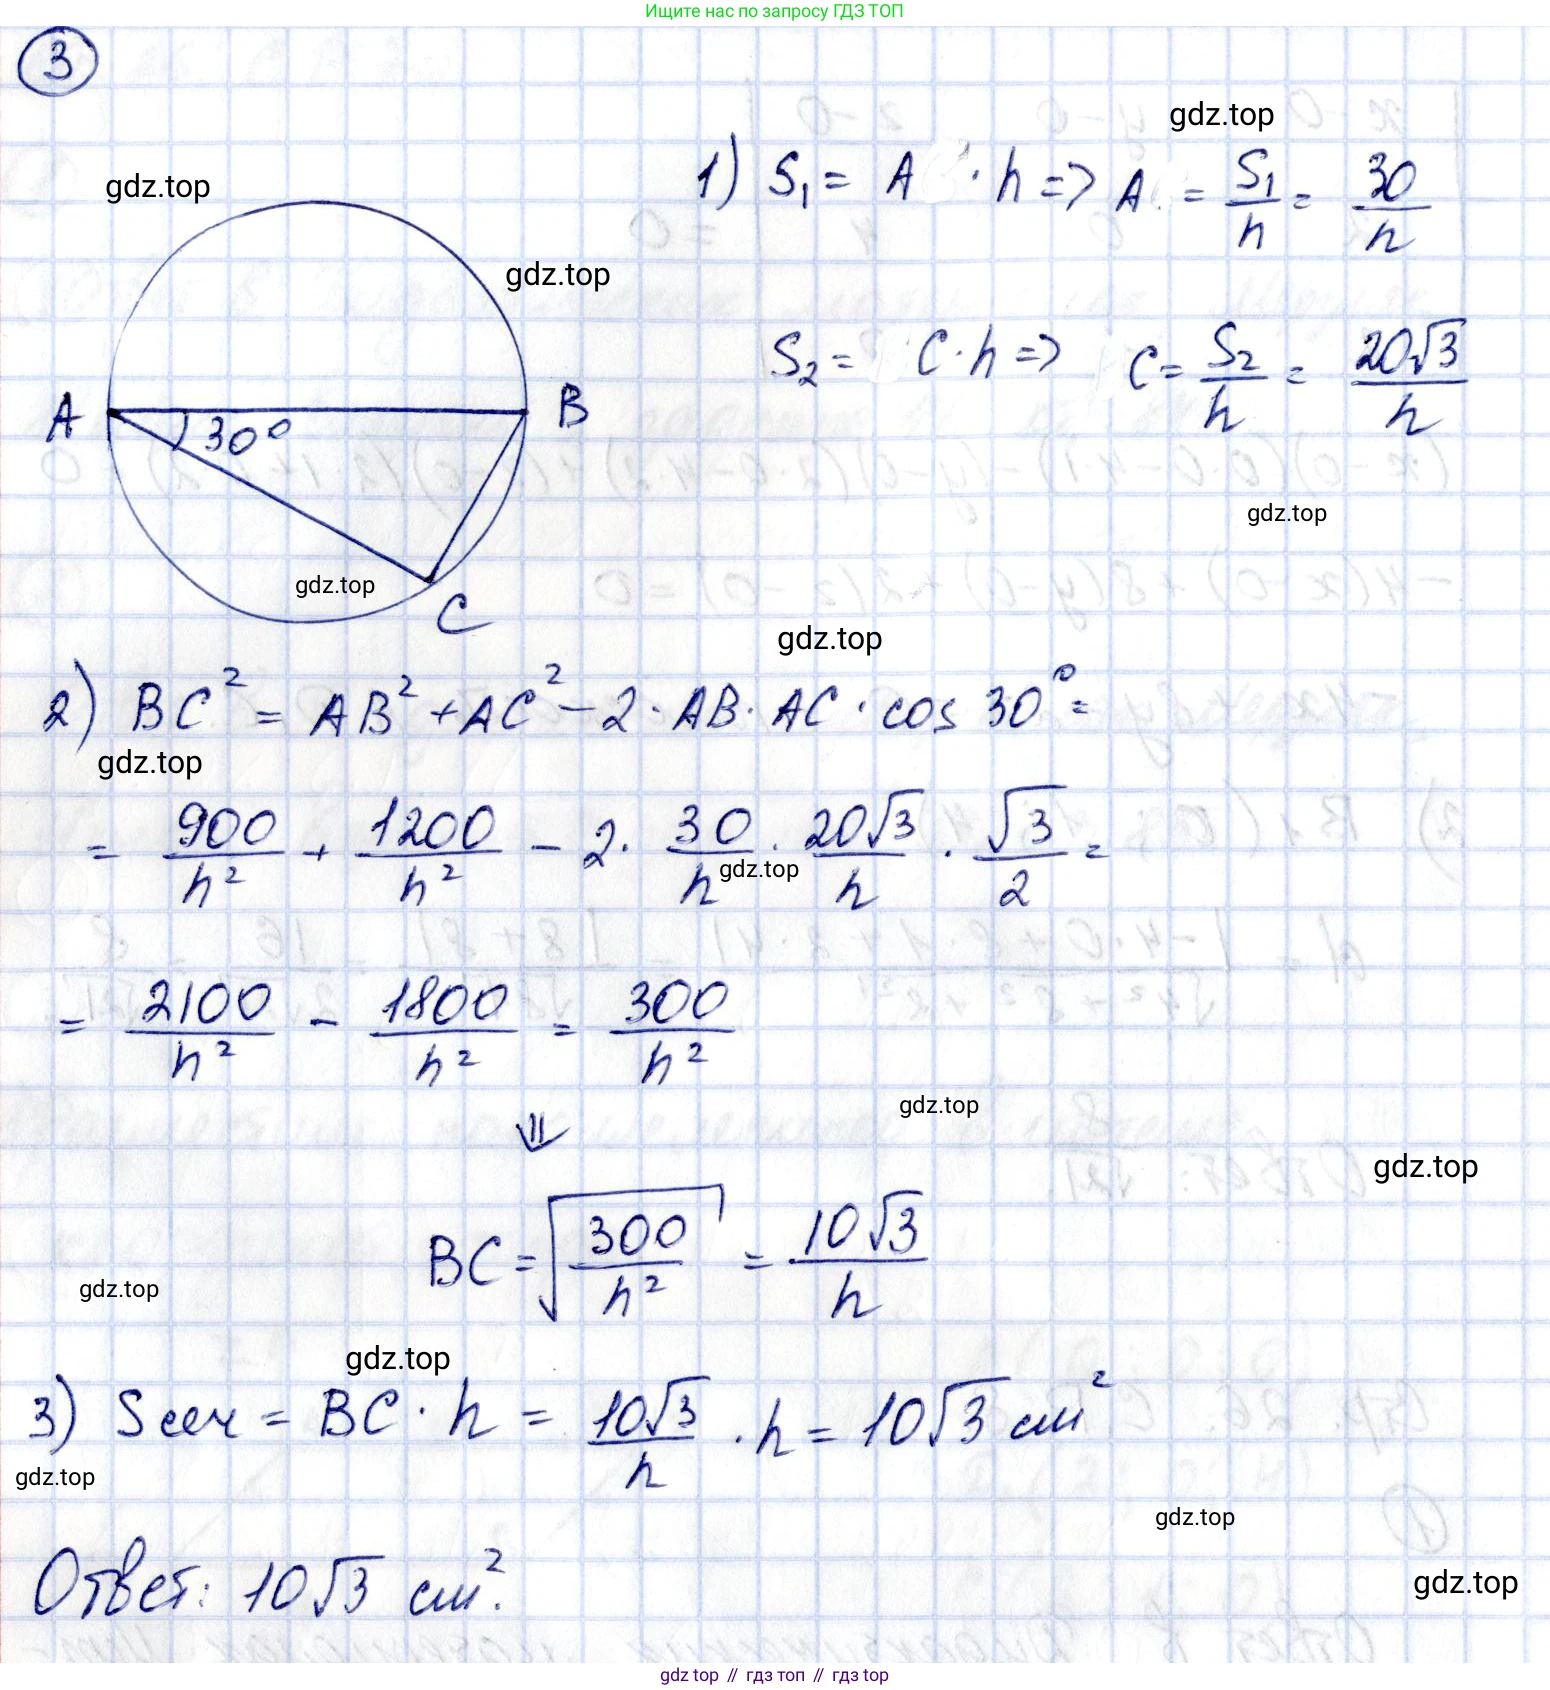 Ищите нас по запросу ГДЗ ТОП
3
gdz.top
gdz.top
1) S₁ = A · h => A = S₁/h = 30/h
gdz.top
S₂ = C · h => C = S₂/h = 20√3/h
A
30°
B
gdz.top
gdz.top
C
gdz.top
2) BC² = AB² + AC² - 2 · AB · AC · cos 30° =
gdz.top
= 900/h² + 1200/h² - 2 · 30/h · 20√3/h · √3/2 =
gdz.top
= 2100/h² - 1800/h² = 300/h²
gdz.top
⇓
gdz.top
BC = √(300/h²) = 10√3/h
gdz.top
gdz.top
3) Sсеч = BC · h = 10√3/h · h = 10√3 см²
gdz.top
gdz.top
Ответ: 10√3 см².
gdz.top
gdz top // гдз топ // гдз top